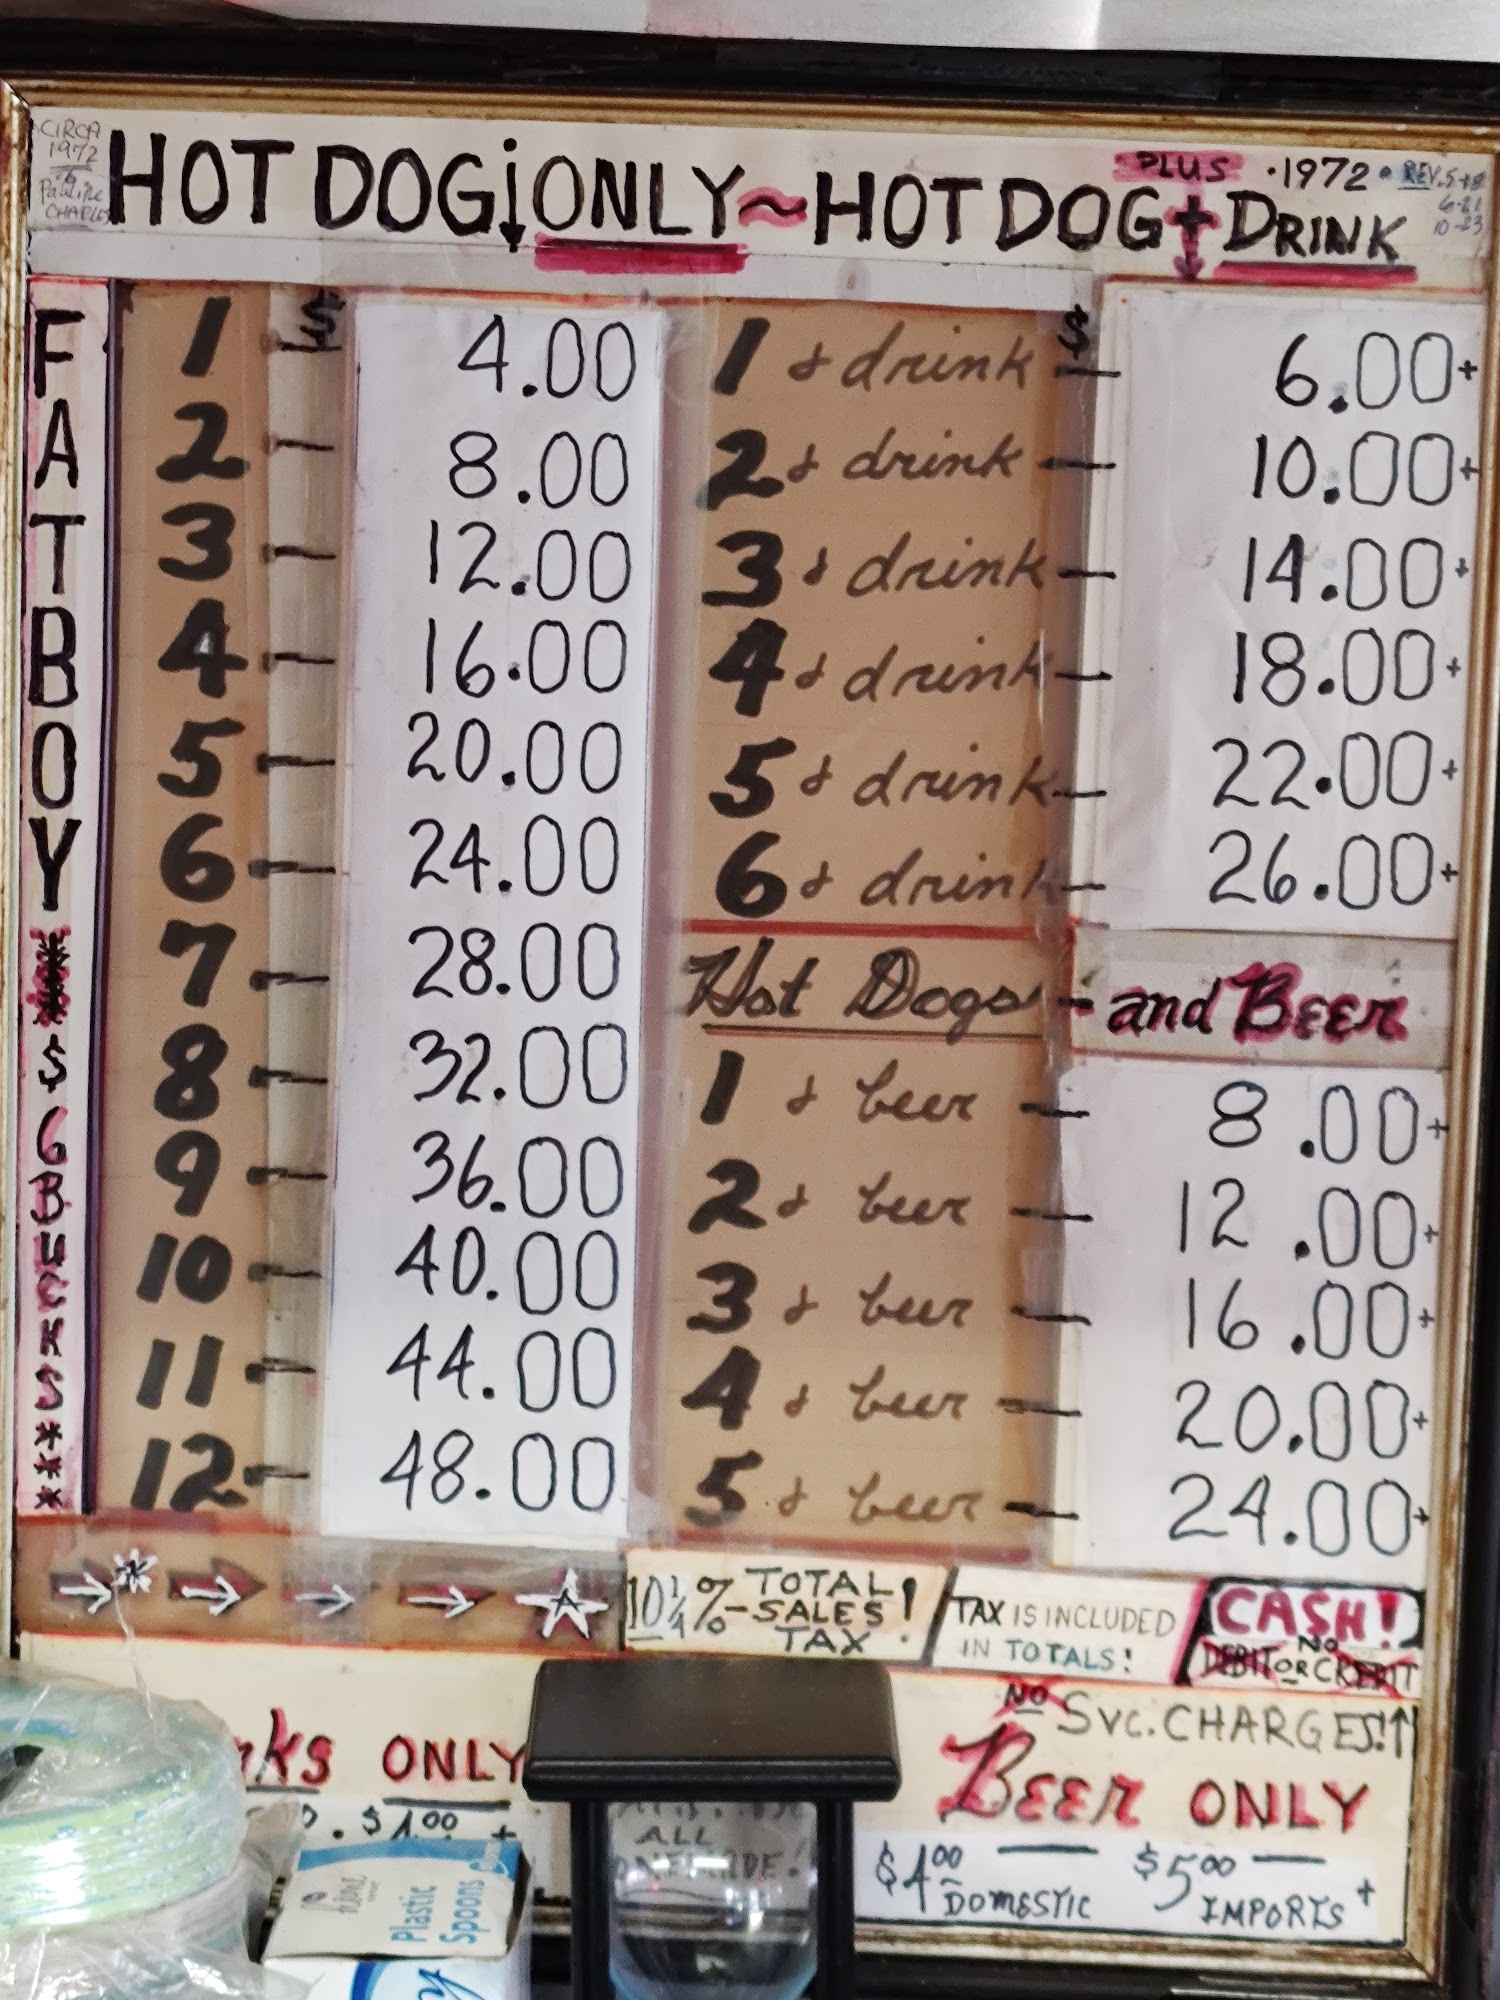 CIRCA
1972
HOT DOG ONLY ~ HOT DOG + DRINK
PLUS · 1972 • REV. 5-18
6-21
10-23
FATBOY
$6 BUCKS ***
$
1 - 4.00
2 - 8.00
3 - 12.00
4 - 16.00
5 - 20.00
6 - 24.00
7 - 28.00
8 - 32.00
9 - 36.00
10 - 40.00
11 - 44.00
12 - 48.00
$
1 & drink - 6.00+
2 & drink - 10.00+
3 & drink - 14.00+
4 & drink - 18.00+
5 & drink - 22.00+
6 & drink - 26.00+
Hot Dogs - and Beer
1 & beer - 8.00+
2 & beer - 12.00+
3 & beer - 16.00+
4 & beer - 20.00+
5 & beer - 24.00+
10 1/4 % - TOTAL
SALES !
TAX
TAX IS INCLUDED
IN TOTALS!
CASH!
NO
DEBIT OR CREDIT
NO SVC. CHARGES!
ONLY
BEER ONLY
ALL
$4.00 DOMESTIC
$5.00 IMPORTS +
Plastic
Spoons